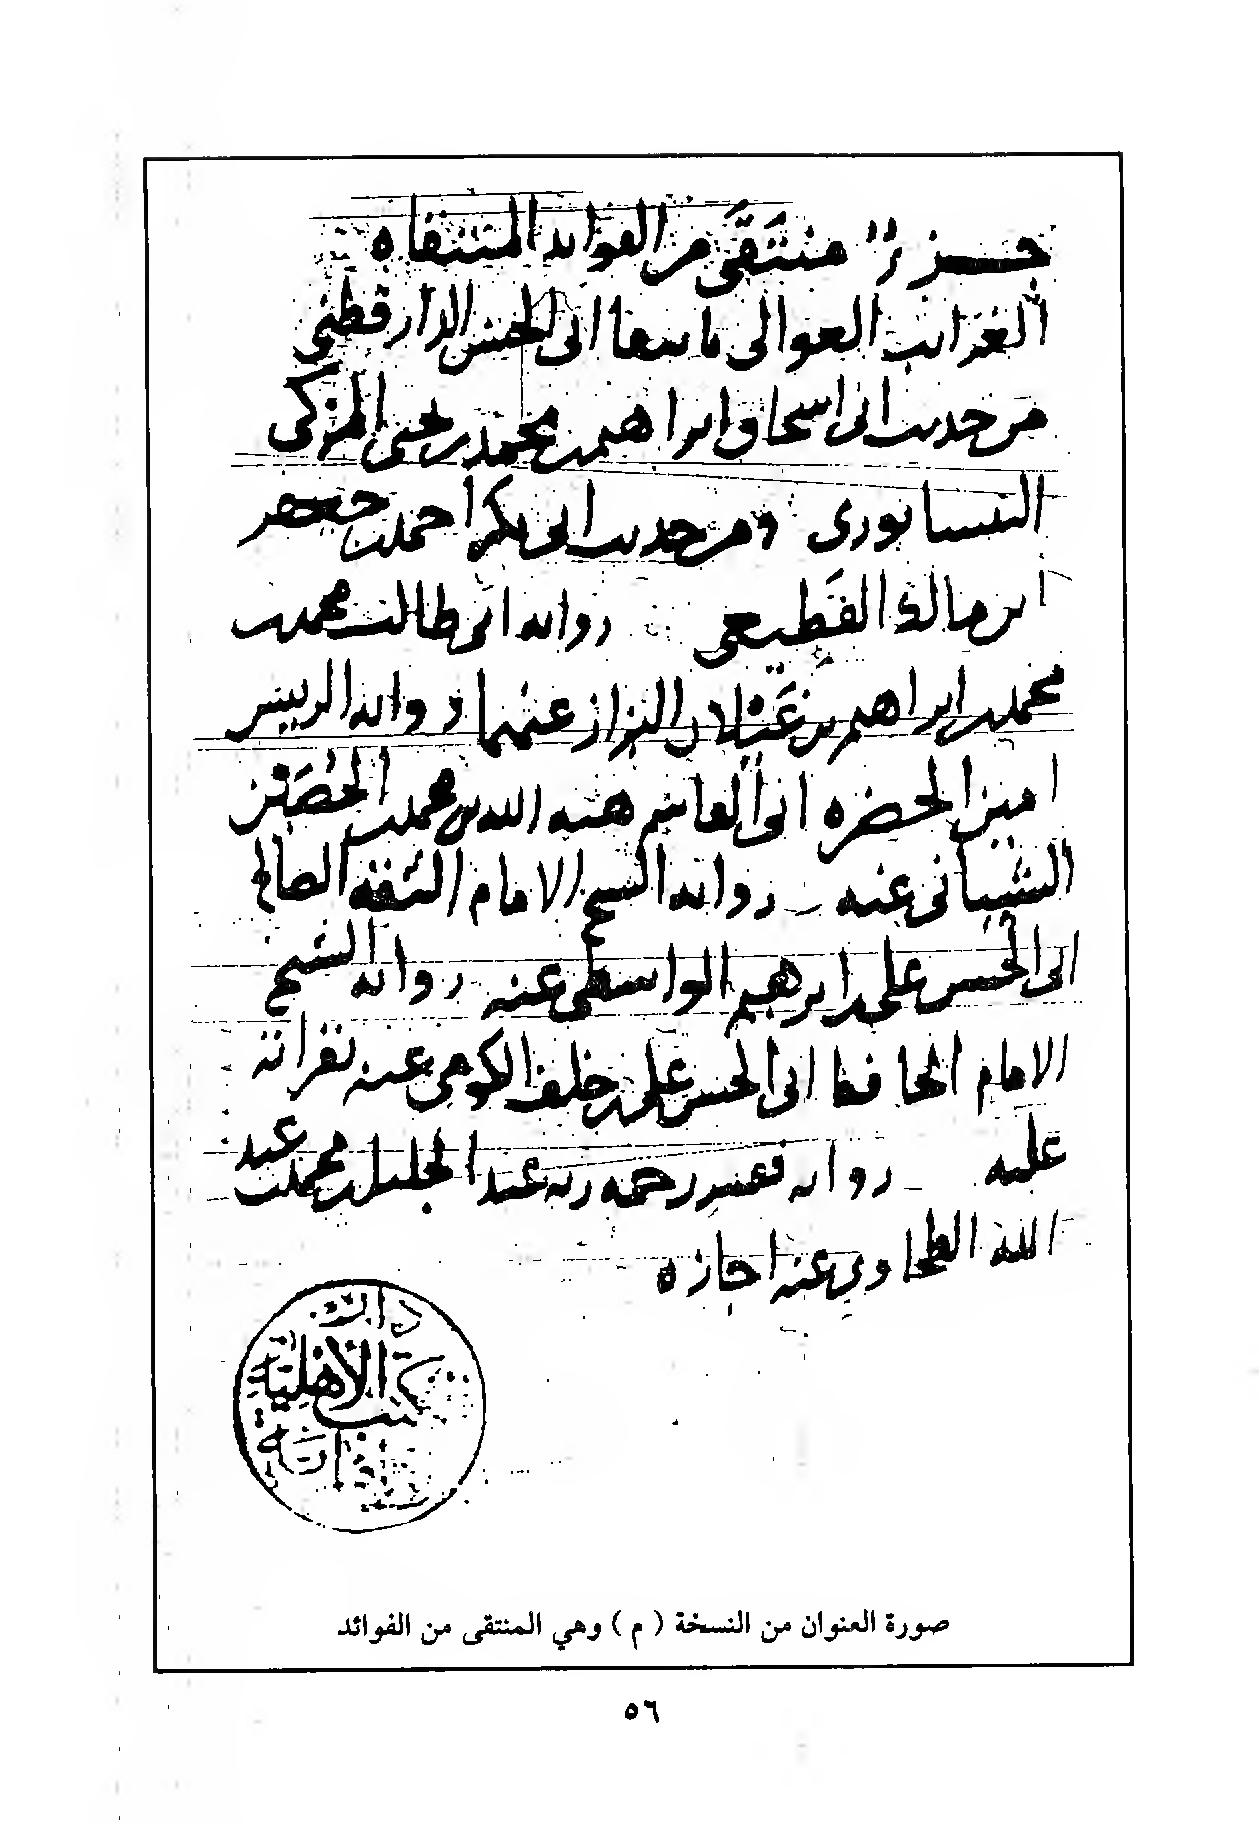 جزء منتقى من الفوائد المنتقاه
الغرائب العوالى باسعا ابى الحسن الدارقطني
من حديث ابى اسحاق ابراهيم بن محمد بن يحيى المزكى
النيسابورى ومن حديث ابى بكر احمد بن جعفر
ابن مالك القطيعى رواية ابى طالب محمد بن
محمد بن ابراهيم بن غيلان البزاز عنهما رواية الرييس
امين الحضره ابى القاسم هبه الله بن محمد بن الحصين
الشيبانى عنه رواية الشيخ الامام الثقه الصالح
ابى الحسن على بن ابرهيم الواسطى عنه رواية الشيخ
الامام الحافظ ابى الحسن على بن خلف الكومى عنه بقراته
عليه رواية فقير رحمه ربه عبد الجليل بن محمد بن عبد
الله الطحاوى عنه اجازه
دار
الكتب الأهلية
صورة العنوان من النسخة ( م ) وهي المنتقى من الفوائد
٥٦